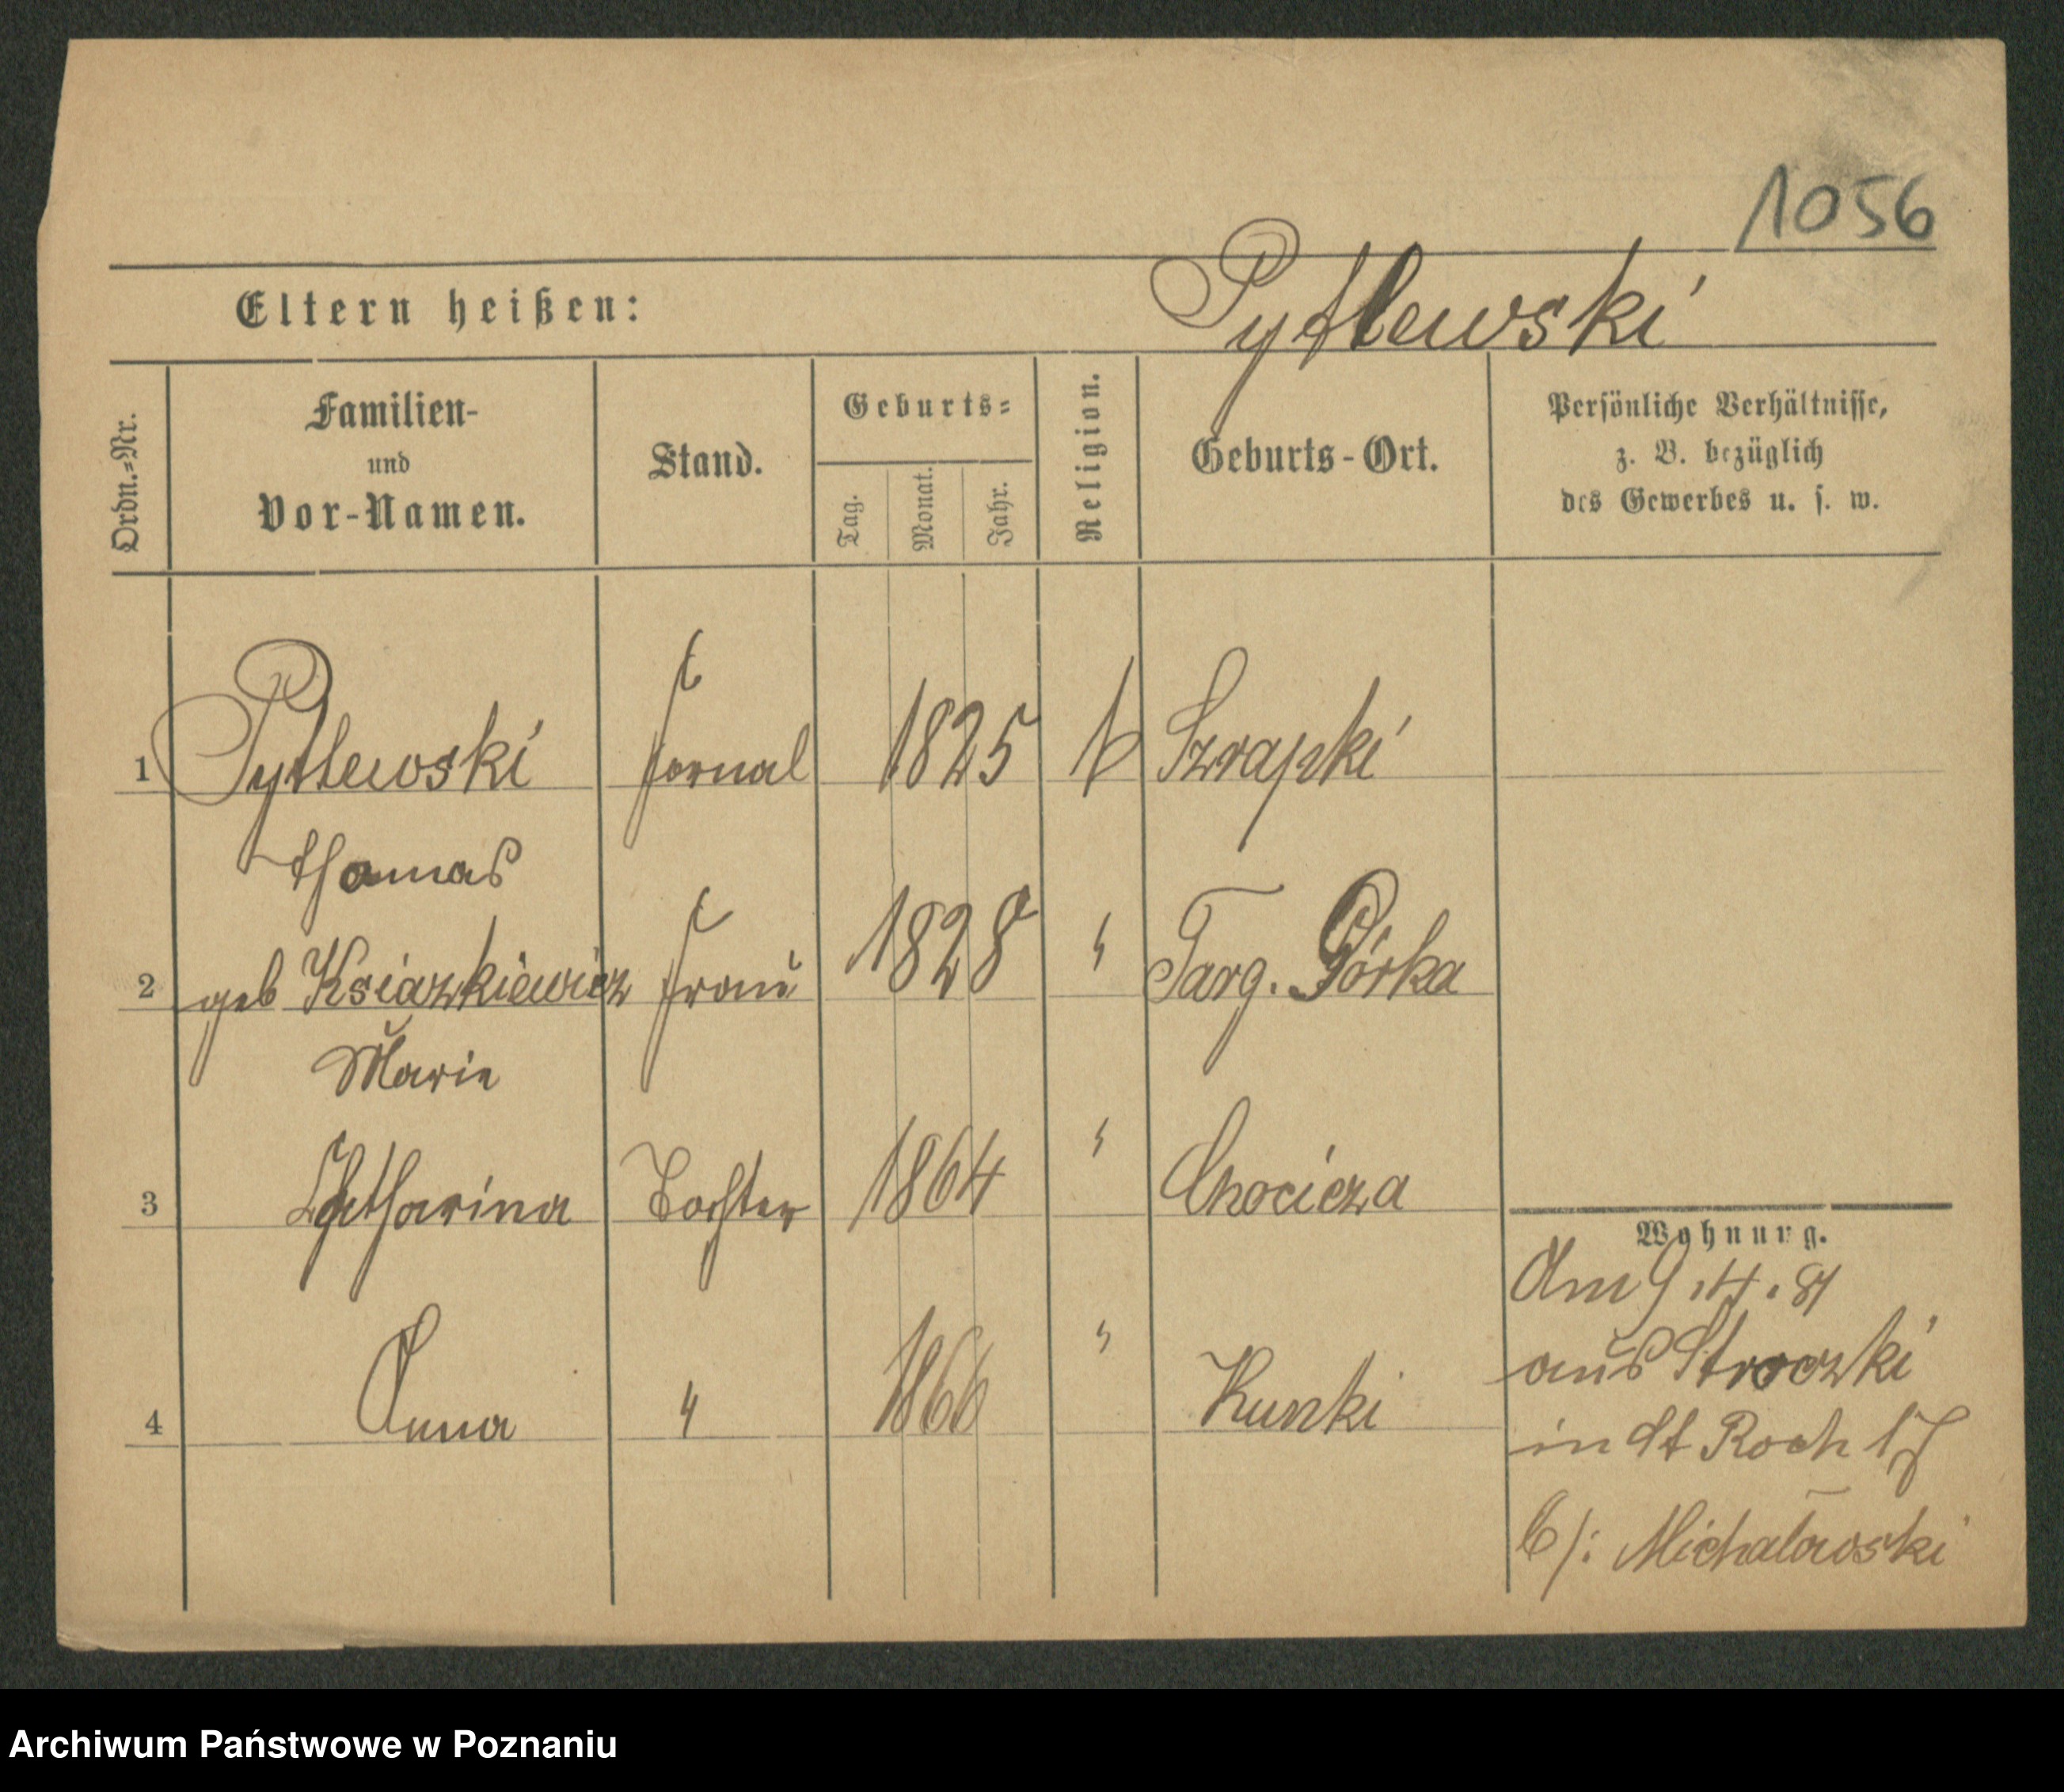 1056
Eltern heißen: Pytlewski
Ordn.=Nr.
Familien-
und
Vor-Namen.
Stand.
Geburts=
Tag.
Monat.
Jahr.
Religion.
Geburts-Ort.
Persönliche Verhältnisse,
z. B. bezüglich
des Gewerbes u. s. w.
1 Pytlewski fornal 1825 k Szrapki
Thomas
2 geb Ksiazkiewicz Frau 1828 " Targ. Górka
Marie
3 Catharina Tochter 1864 " Chocicza
4 Anna " 1866 " Kunki
Wohnung.
Am 9.4.81
aus Stroczki
in St Roch 17
b/: Michalowski
Archiwum Państwowe w Poznaniu